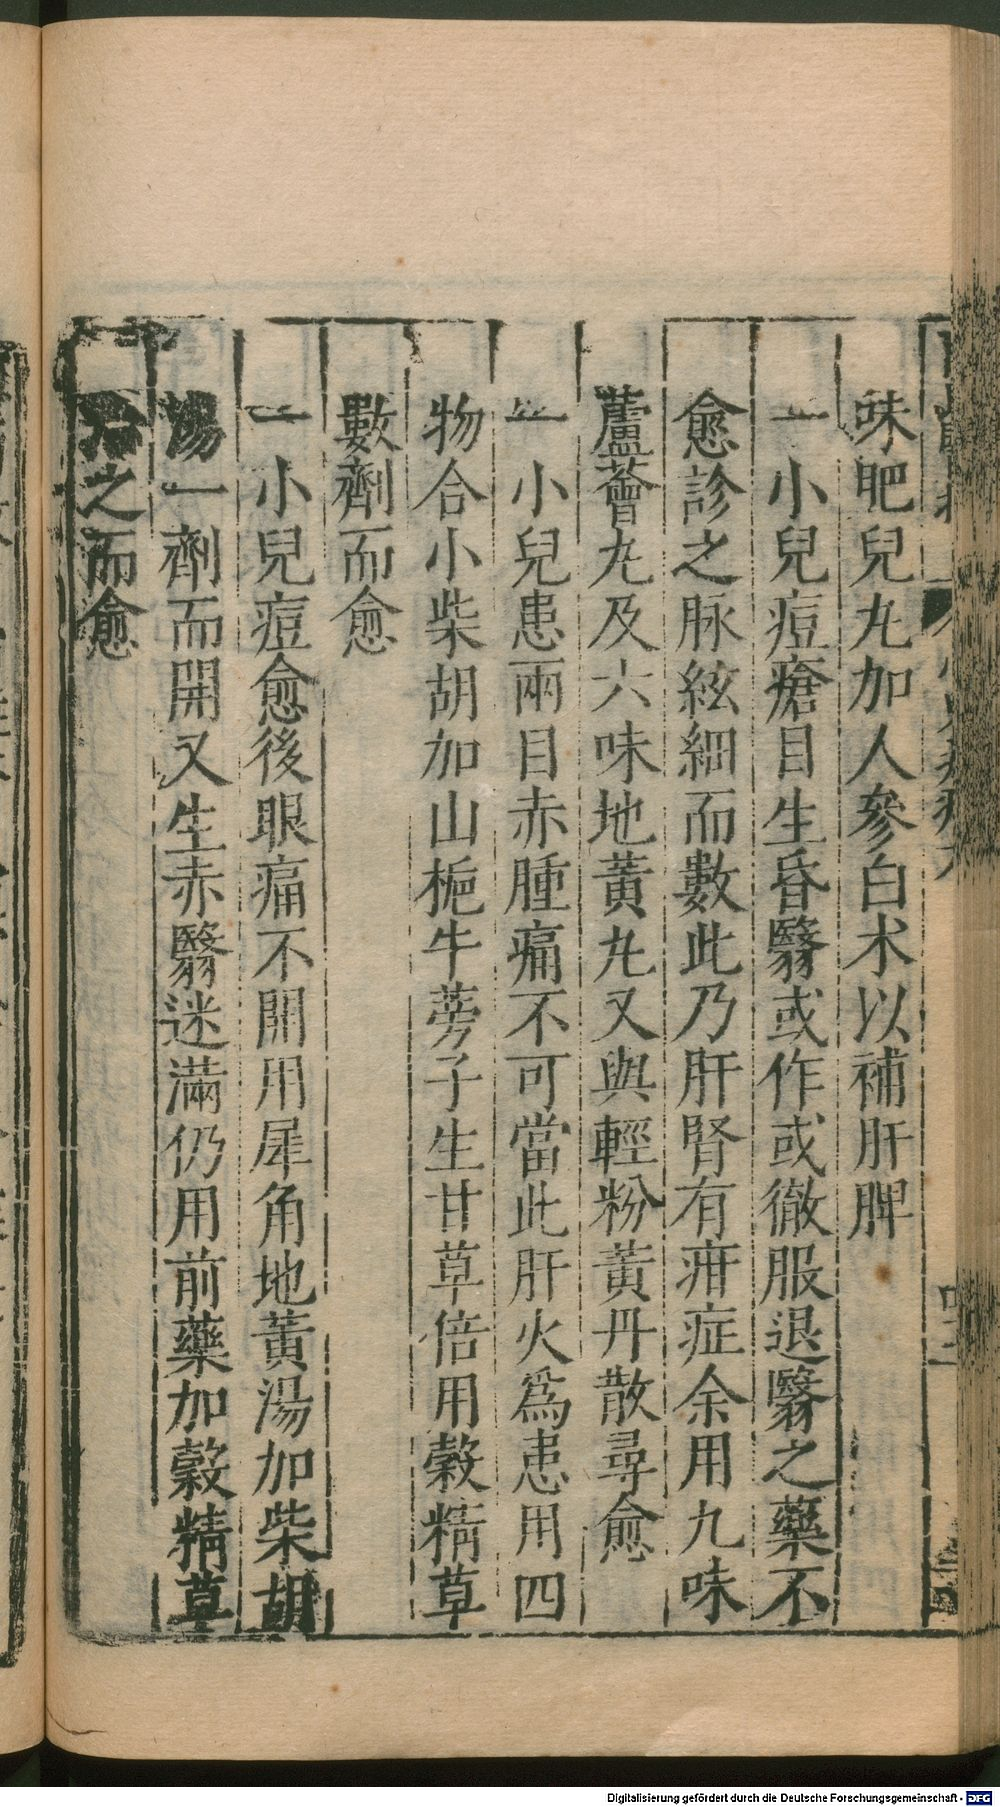 味肥兒丸加人參白朮以補肝脾
一小兒痘瘡目生昏翳或作或徹服退翳之藥不
愈診之脉絃細而數此乃肝腎有疳症余用九味
蘆薈丸及六味地黃丸又與輕粉黃丹散尋愈
一小兒患兩目赤腫痛不可當此肝火爲患用四
物合小柴胡加山梔牛蒡子生甘草倍用穀精草
數劑而愈
一小兒痘愈後眼痛不開用犀角地黃湯加柴胡
湯一劑而開又生赤翳迷滿仍用前藥加穀精草
治之而愈
Digitalisierung gefördert durch die Deutsche Forschungsgemeinschaft - DFG